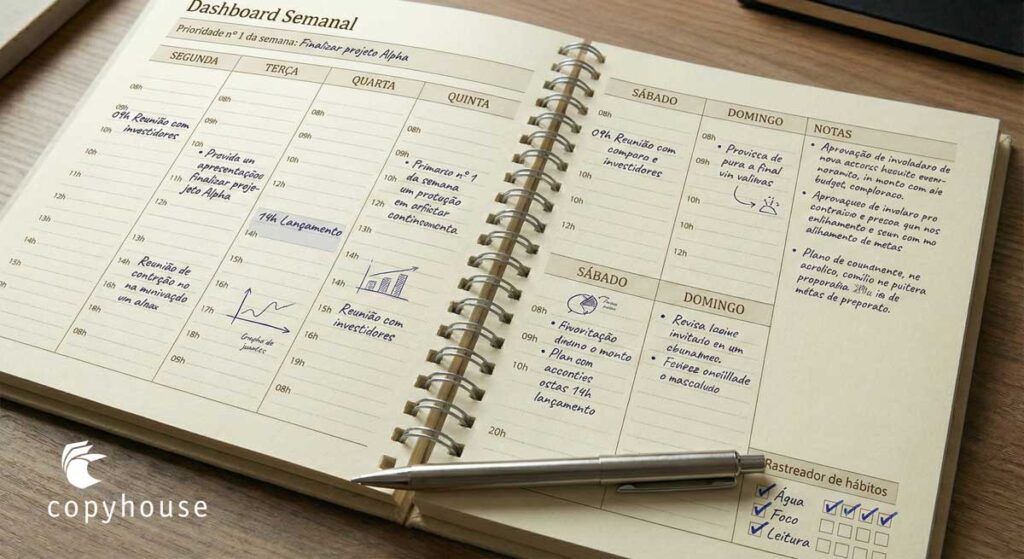 Dashboard Semanal
Prioridade nº 1 da semana: Finalizar projeto Alpha
SEGUNDA
08h
09h Reunião com
investidores
10h
10h
11h
12h
13h
14h
15h
TERÇA
08h
09h
10h
• Provida un
apresentação
11h Finalizar proje-
jeto Alpha
12h
13h
14h Reunião de
contrção no
na munivaçdo
um alnax
15h
16h
18h
QUARTA
08h
09h
10h
12h
14h Lançamento
14h
15h
16h
17h
Grapho de
juantes
18h
09h
QUINTA
08h
09h
• Primario nº 1
da semana
10h um protução
em arfictar
12h continsomenta
13h
14h
15h
Reunião com
investidores
16h
19h
08h
SÁBADO
08h
09h Reunião com
comporo e
investidores
10h
12h
DOMINGO
08h • Provisca de
pura a final
09h vin valivas
10h
12h
NOTAS
• Aprovação de involadaro de
nova actorss huscuite evenx-
noramito, in monto com aie
budget, comploraco.
• Aprovaqueo de involaro pro
contraiso e pressoa qun nos
enlihamento e seun com mo
alihamento de metas
• Plano de coundnente, ne
acrolico, comílio ne puitera
proporalia
métas de preporato.
SÁBADO
08h • Fivoritação
09h diueino o monto
10h • Plan com
acconties
ostas 14h
lançamento
20h
DOMINGO
• Revisa
invitado en um
• Fcvise oniillade
o mascaludo
Rastreador de hábitos
Água
Foco
Leitura
copyhouse